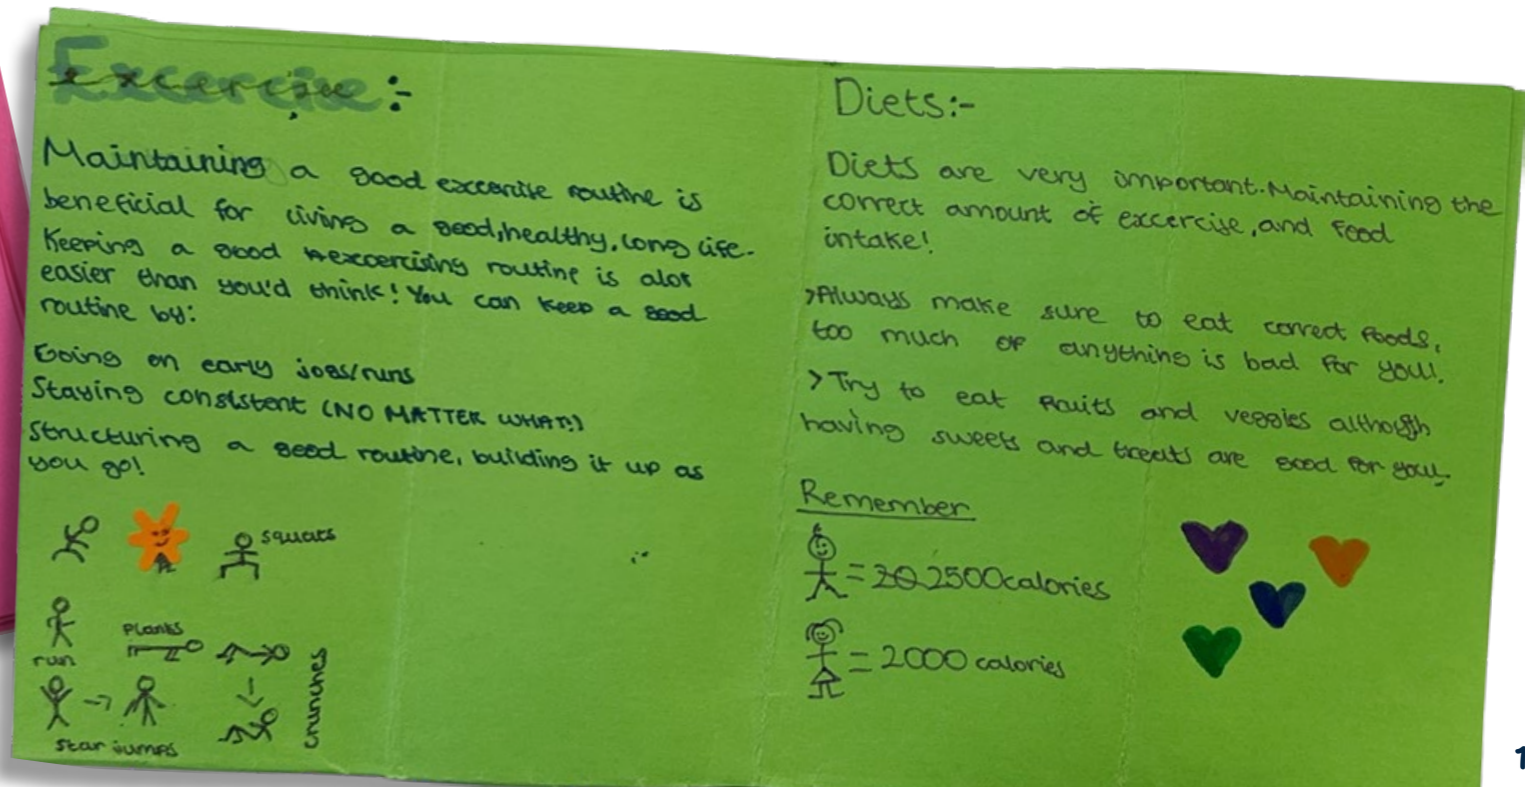 Excercise:-
Maintaining a good excersise routine is
beneficial for living a good, healthy, long life.
Keeping a good excercising routine is alot
easier than you'd think! You can keep a good
routine by:
Going on early jogs/runs
Staying consistent (NO MATTER WHAT!)
Structuring a good routine, building it up as
you go!
squats
run
Planks
crunches
star jumps
Diets:-
Diets are very important. Maintaining the
correct amount of excercise, and food
intake!
>Always make sure to eat correct foods,
too much of anything is bad for you!
>Try to eat fruits and veggies although
having sweets and treats are good for you!
Remember
= 20 2500 calories
= 2000 calories
1